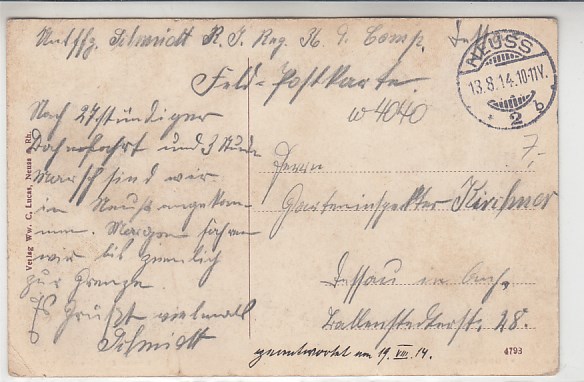 Untffz. Schmidt R. I. Reg. 36 9. Comp.
NEUSS
13.8.14.10-11V.
* 2 b
Feld-Postkarte
w 4040
7.-
Nach 27stündiger
Bahnfahrt und 3 Stude
Marsch sind wir
in Neuß angekom-
men. Morgen fahren
wir bis ziemlich
zur Grenze.
Es Grüßt vielmals
Schmidt
Herrn
Garteninspektor Kirchner
Dessau in Anh.
Ballenstedterstr. 28.
geantwortet am 19. VIII. 14.
Verlag Ww. C. Lucas, Neuss a. Rh.
4793